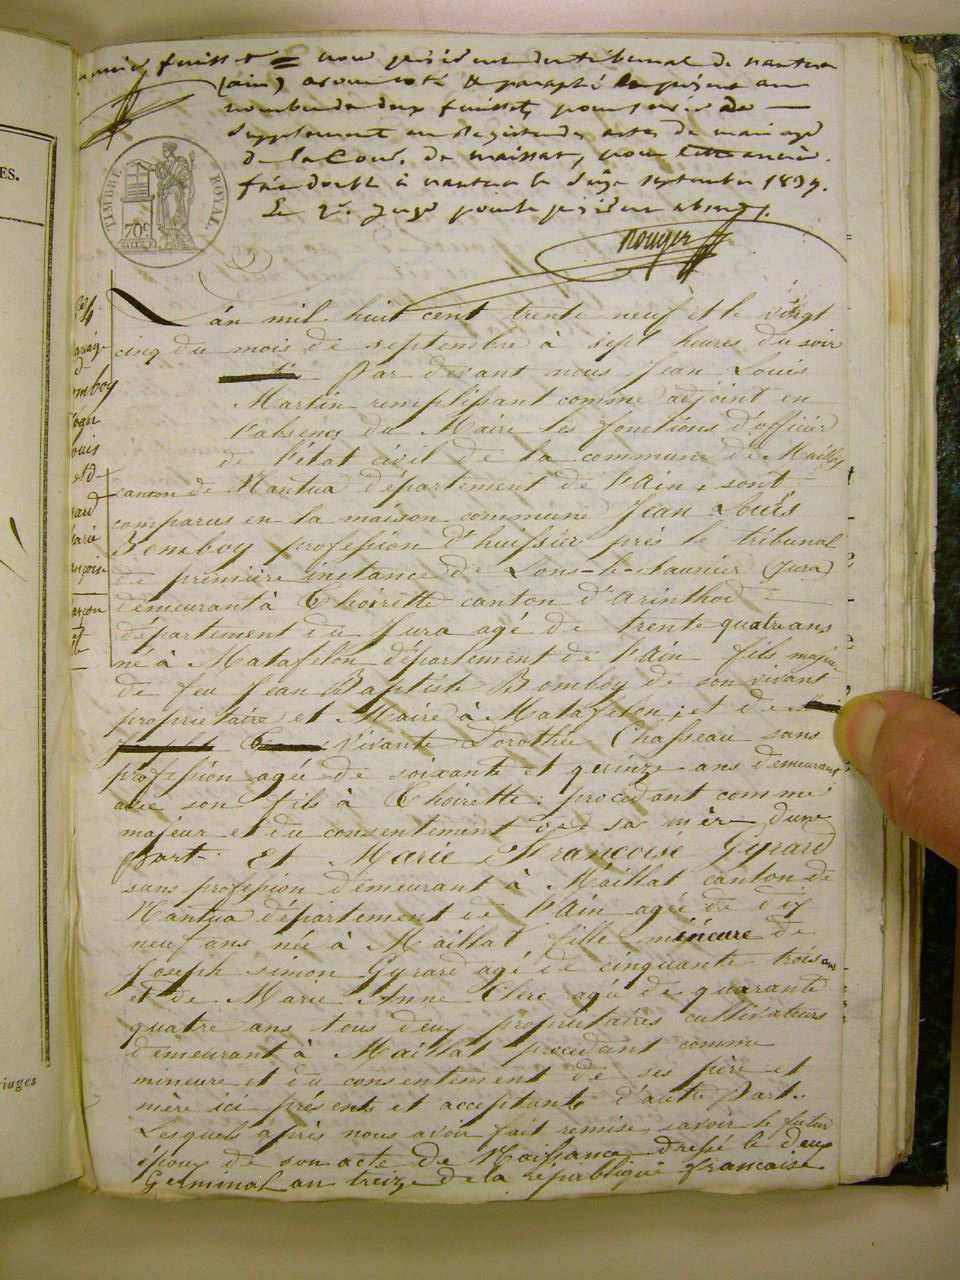 premier feuillet = nous président du tribunal de nantua
(ain) avons coté & paraphé le présent au
nombre de deux feuillets pour servir de
supplément au Registre des actes de mariage
de la Com. de maillat, pour
fait double à nantua le Septembre 1839.
Le Juge pour le président absent.
Rouyer
TIMBRE ROYAL
70c
L'an mil huit cent trente neuf et le vingt
cinq du mois de septembre à sept heures du soir
Par devant nous Jean Louis
Martin remplissant comme adjoint en
l'absence du Maire les fonctions d'officier
de l'état civil de la commune de Maillat
canton de Nantua département de l'Ain, sont
comparus en la maison commune Jean Louis
Bomboy profession d'huissier près le tribunal
de première instance de Lons-le-chaunier (Jura)
demeurant à Thoirette canton d'Arinthod
département du Jura agé de trente quatre ans
né à Matafelon département de l'Ain fils majeur
de feu Jean Baptiste Bomboy de son vivant
propriétaire et Maire à Matafelon ; et de
vivante Dorothée Chasseau sans
profession agée de soixante et quinze ans demeurant
avec son fils à Thoirette : procédant comme
majeur et du consentement de sa mère d'une
part. Et Marie Françoise Gyrard
sans profession demeurant à Maillat canton de
Nantua département de l'Ain agée de dix
neuf ans née à Maillat, fille mineure de
Joseph Simon Gyrard agé de cinquante trois ans
et de Marie Anne Clerc agée de quarante
quatre ans tous deux propriétaires cultivateurs
demeurant à Maillat procédant comme
mineure et du consentement de ses père et
mère ici présents et acceptants d'autre Part.
Lesquels après nous avoir fait remise, savoir le futur
époux de son acte de Naissance dressé le deux
Germinal an treize de la république française